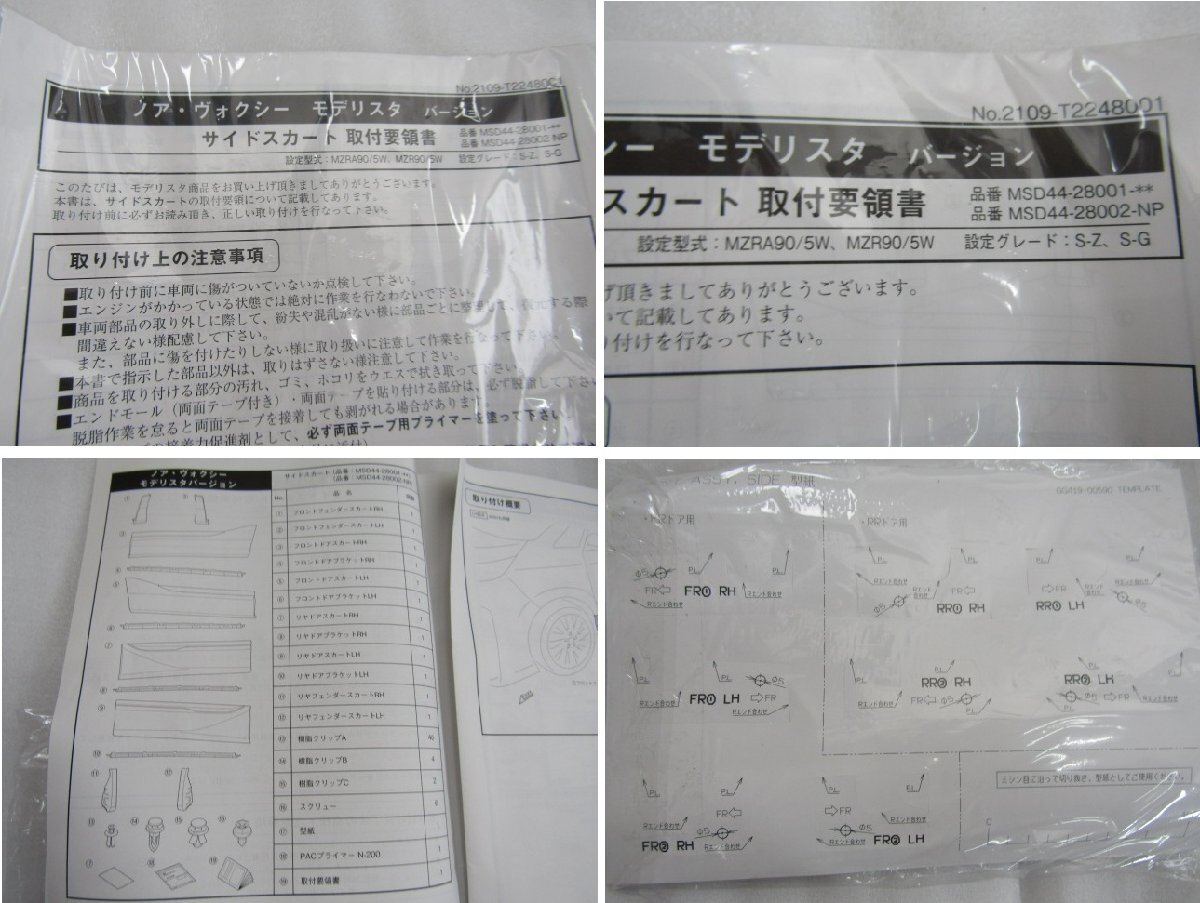 No.2109-T2248001
ノア・ヴォクシー モデリスタ バージョン
サイドスカート 取付要領書
品番 MSD44-28001-**
品番 MSD44-28002-NP
設定型式:MZRA90/5W、MZR90/5W 設定グレード:S-Z、S-G
このたびは、モデリスタ商品をお買い上げ頂きましてありがとうございます。
本書は、サイドスカートの取付要領について記載してあります。
取り付け前に必ずお読み頂き、正しい取り付けを行なって下さい。
取り付け上の注意事項
■取り付け前に車両に傷がついていないか点検して下さい。
■エンジンがかかっている状態では絶対に作業を行なわないで下さい。
■車両部品の取り外しに際して、紛失や混乱がない様に部品ごとに整理して、復元する際
間違えない様配慮して下さい。
また、部品に傷を付けたりしない様に取り扱いに注意して作業を行なって下さい。
■本書で指示した部品以外は、取りはずさない様注意して下さい。
■商品を取り付ける部分の汚れ、ゴミ、ホコリをウエスで拭き取って下さい。
■エンドモール(両面テープ付き)・両面テープを貼り付ける部分は、必ず脱脂して下さい
脱脂作業を怠ると両面テープを接着しても剥がれる場合があります。
接着力促進剤として、必ず両面テープ用プライマーを塗って下さい。
No.2109-T2248001
シー モデリスタ バージョン
スカート 取付要領書
品番 MSD44-28001-**
品番 MSD44-28002-NP
設定型式:MZRA90/5W、MZR90/5W 設定グレード:S-Z、S-G
げ頂きましてありがとうございます。
いて記載してあります。
り付けを行なって下さい。
ノア・ヴォクシー
モデリスタバージョン
サイドスカート(品番:MSD44-28001-**)
(品番:MSD44-28002-NP)
No. 品名
① フロントフェンダースカートRH 1
② フロントフェンダースカートLH 1
③ フロントドアスカートRH 1
④ フロントドアブラケットRH 1
⑤ フロントドアスカートLH 1
⑥ フロントドアブラケットLH 1
⑦ リヤドアスカートRH 1
⑧ リヤドアブラケットRH 1
⑨ リヤドアスカートLH 1
⑩ リヤドアブラケットLH 1
⑪ リヤフェンダースカートRH 1
⑫ リヤフェンダースカートLH 1
⑬ 樹脂クリップA
⑭ 樹脂クリップB 4
⑮ 樹脂クリップC 2
⑯ スクリュー 6
⑰ 型紙 1
⑱ PACプライマー N-200 1
⑲ 取付要領書 1
取り付け概要
ASSY, SIDE 型紙
TEMPLATE
・RRドア用
PL
Φ5
FR
Rエンド合わせ
FR① RH
RR① RH
RR① LH
FR① LH
RR② RH
RR② LH
FR② RH
FR② LH
ミシン目に沿って切り抜き、型紙としてご使用ください。